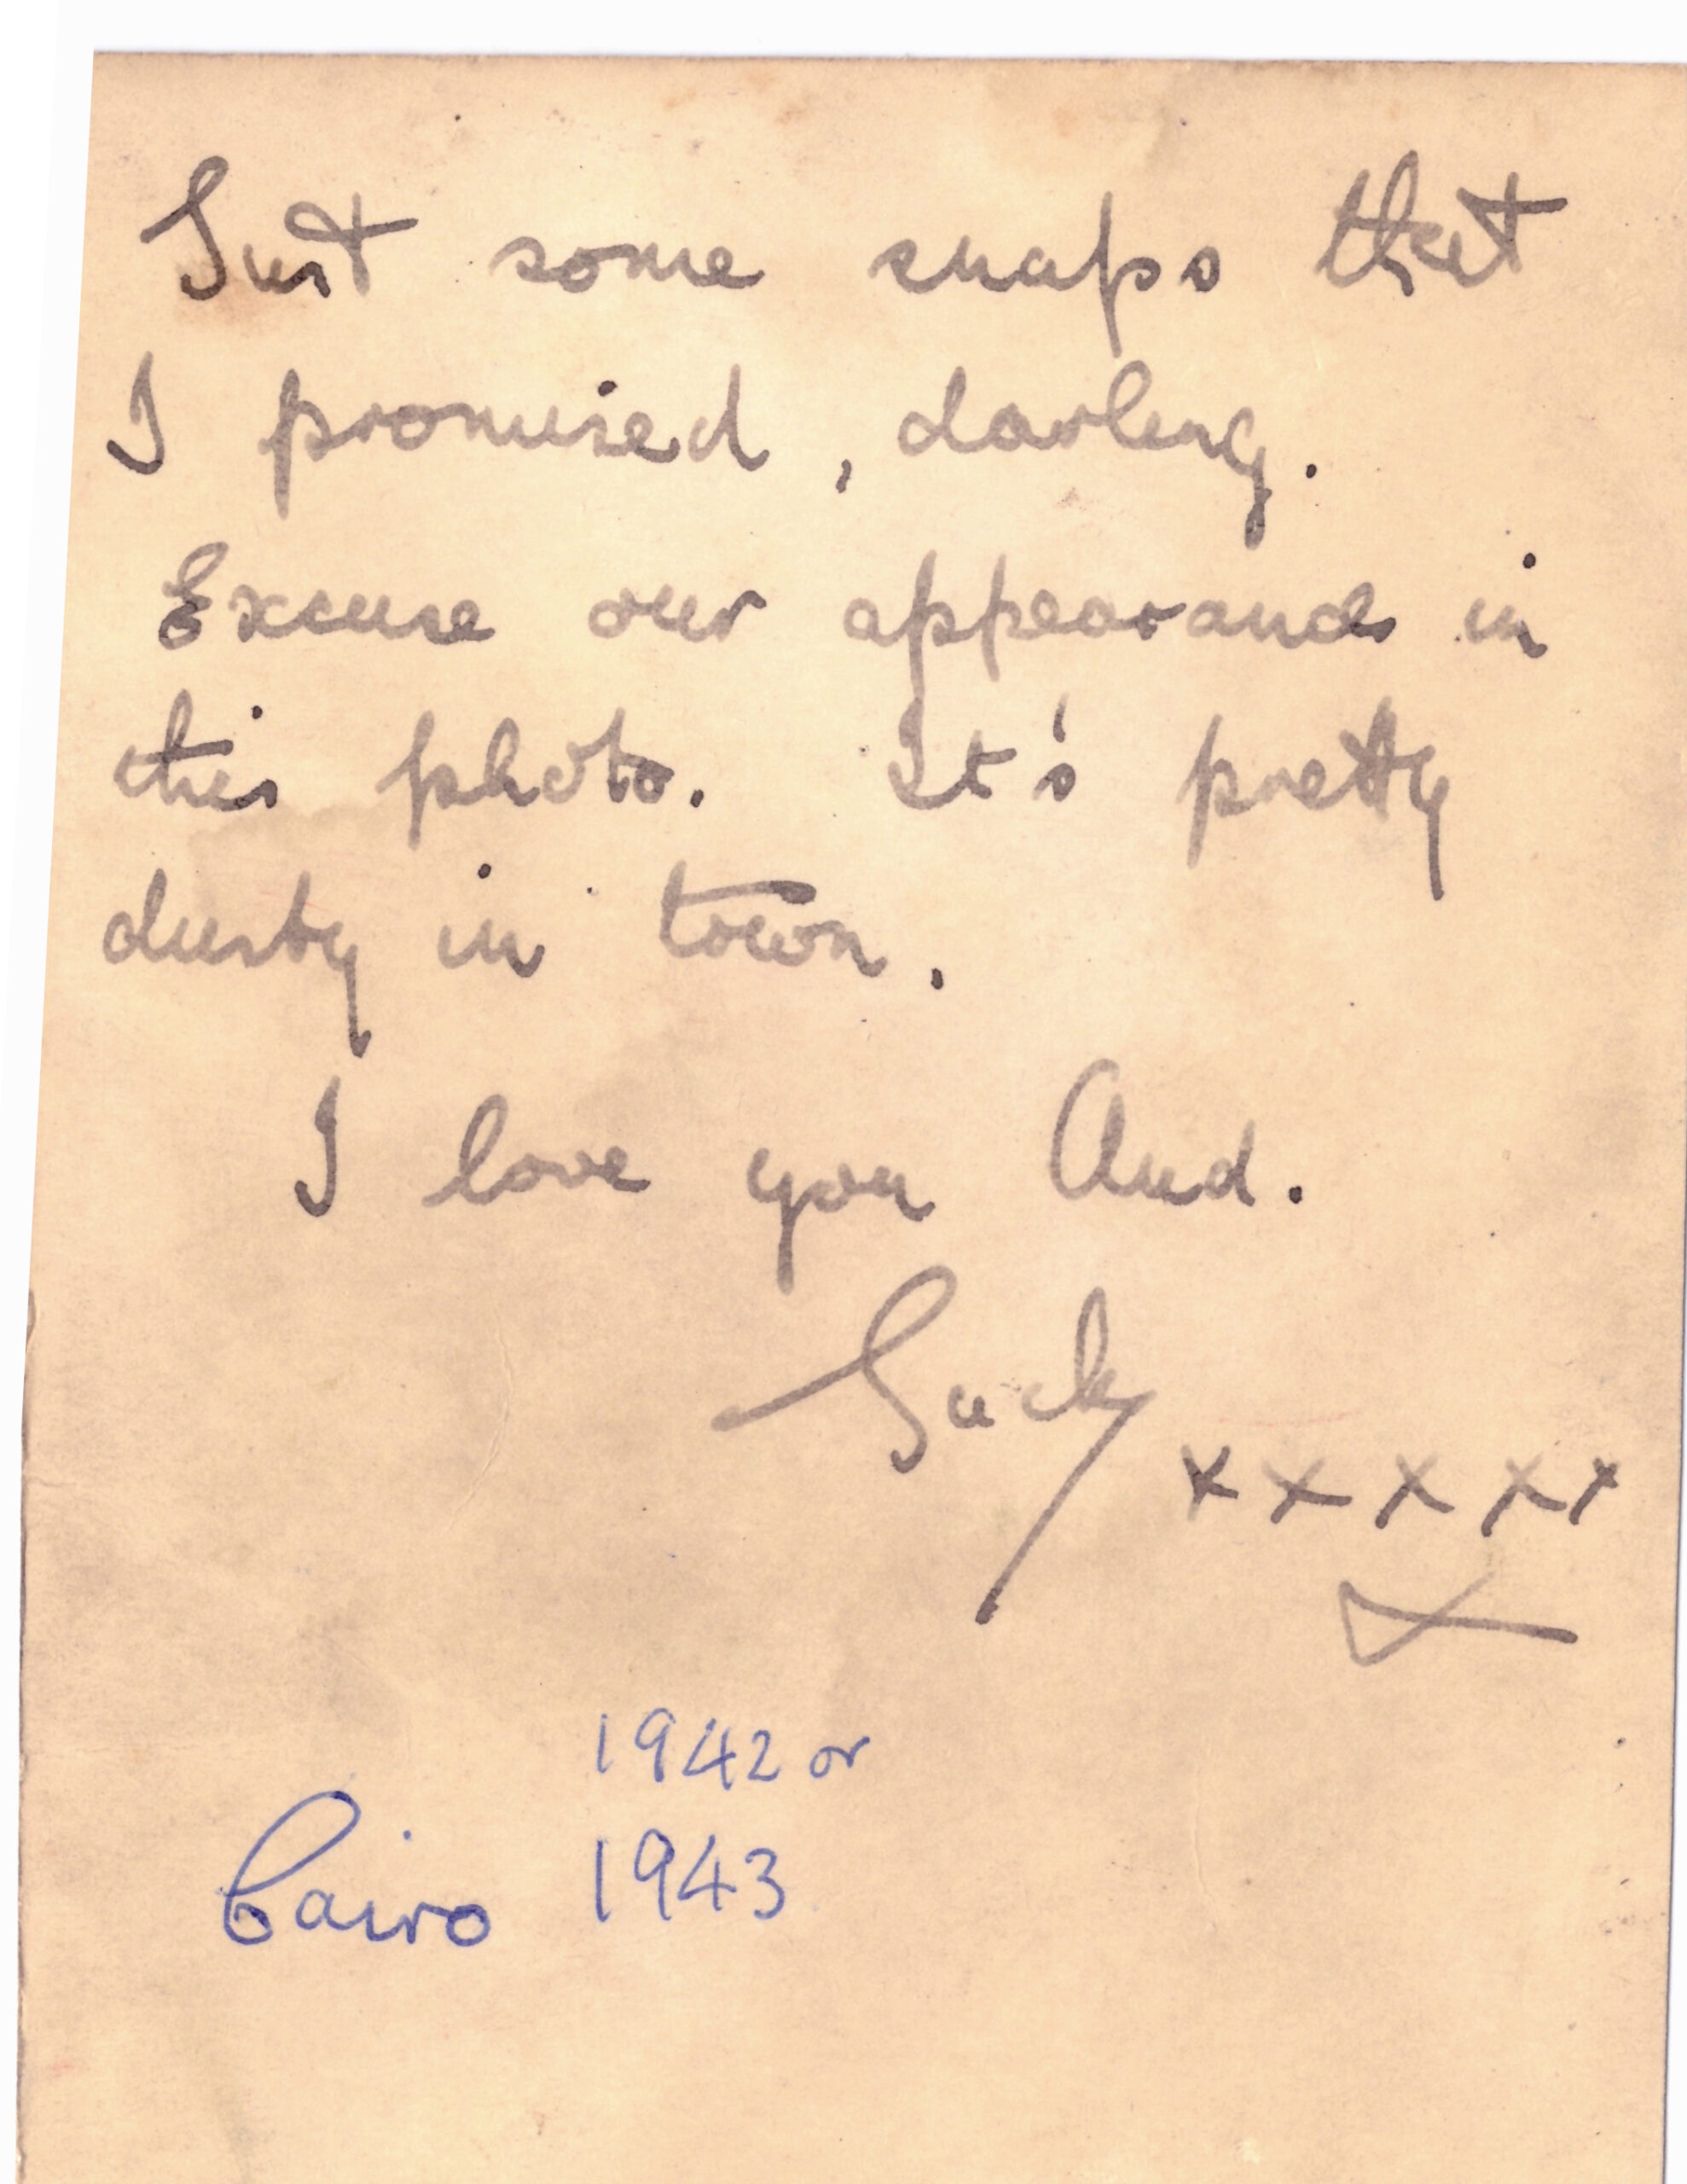 Just some snaps that
I promised, darling.
Excuse our appearance in
this photo. It's pretty
dusty in town.
I love you Aud.
Jack
x x x x x
1942 or
Cairo 1943